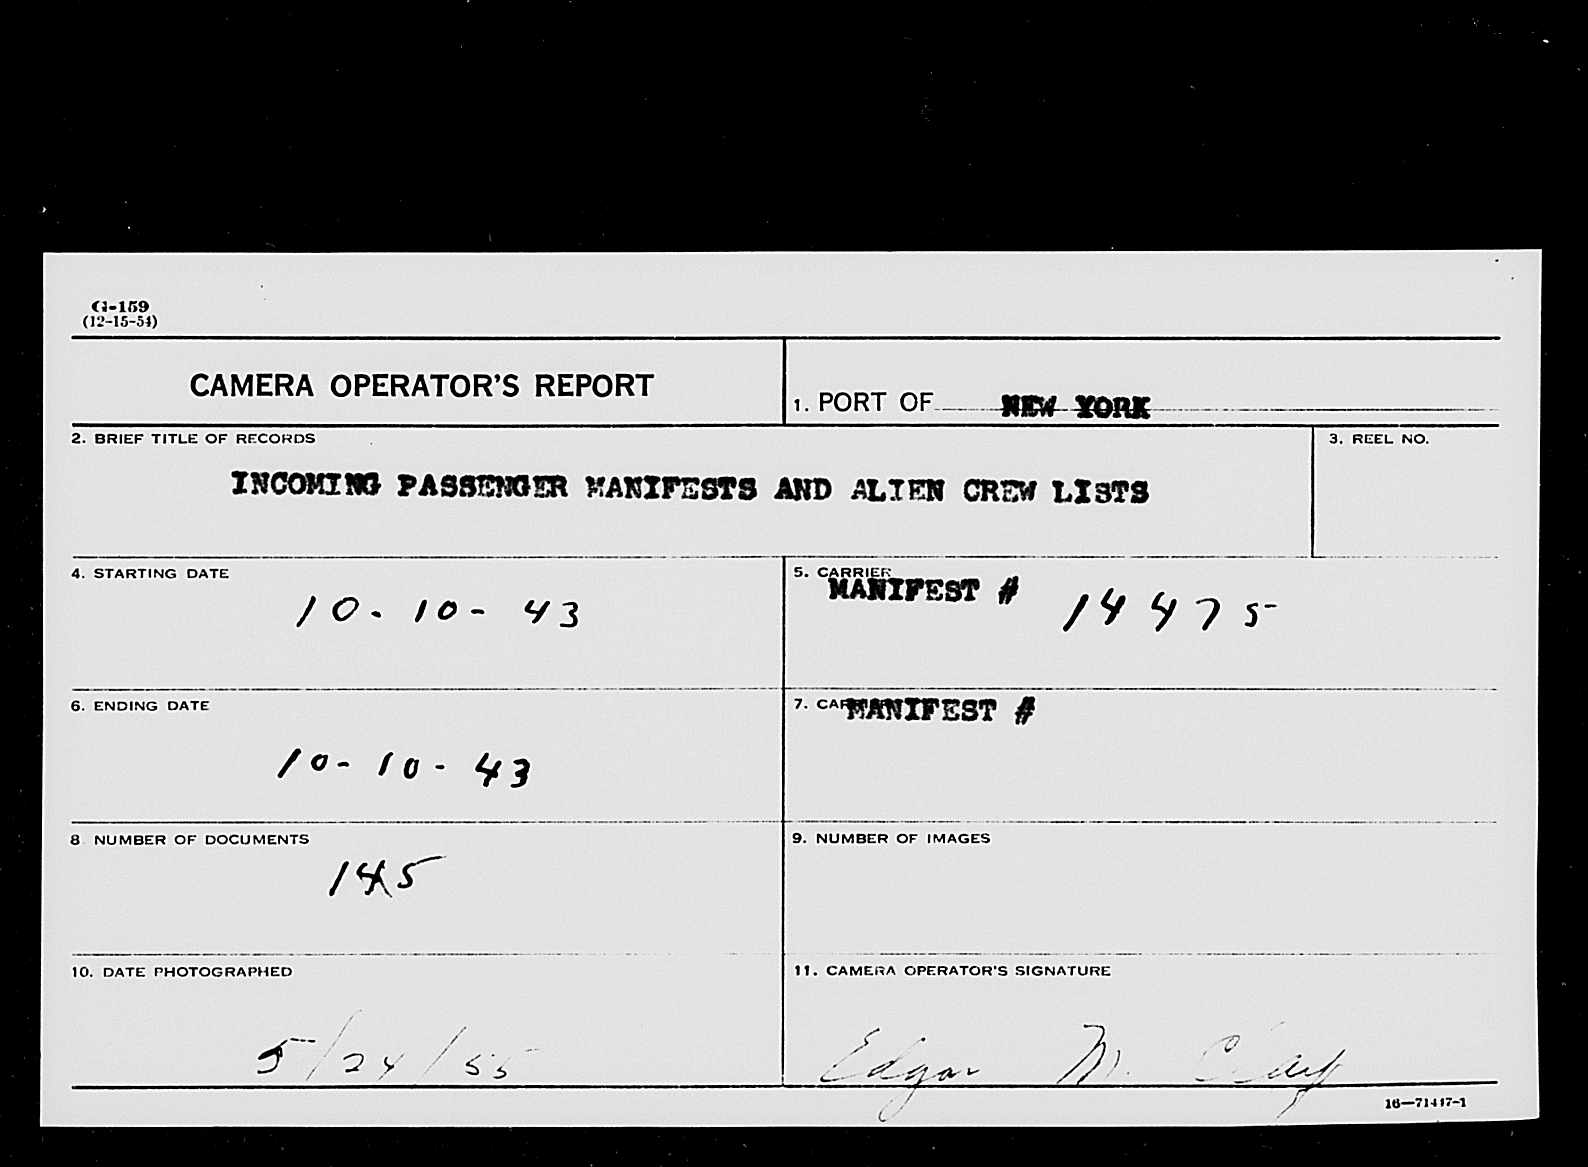 G-159
(12-15-54)
CAMERA OPERATOR'S REPORT
1. PORT OF NEW YORK
2. BRIEF TITLE OF RECORDS
3. REEL NO.
INCOMING PASSENGER MANIFESTS AND ALIEN CREW LISTS
4. STARTING DATE
10-10-43
5. CARRIER
MANIFEST # 14475
6. ENDING DATE
10-10-43
7. MANIFEST #
8 NUMBER OF DOCUMENTS
145
9. NUMBER OF IMAGES
10. DATE PHOTOGRAPHED
5/24/55
11. CAMERA OPERATOR'S SIGNATURE
Edgar M. Clay
16—71417-1